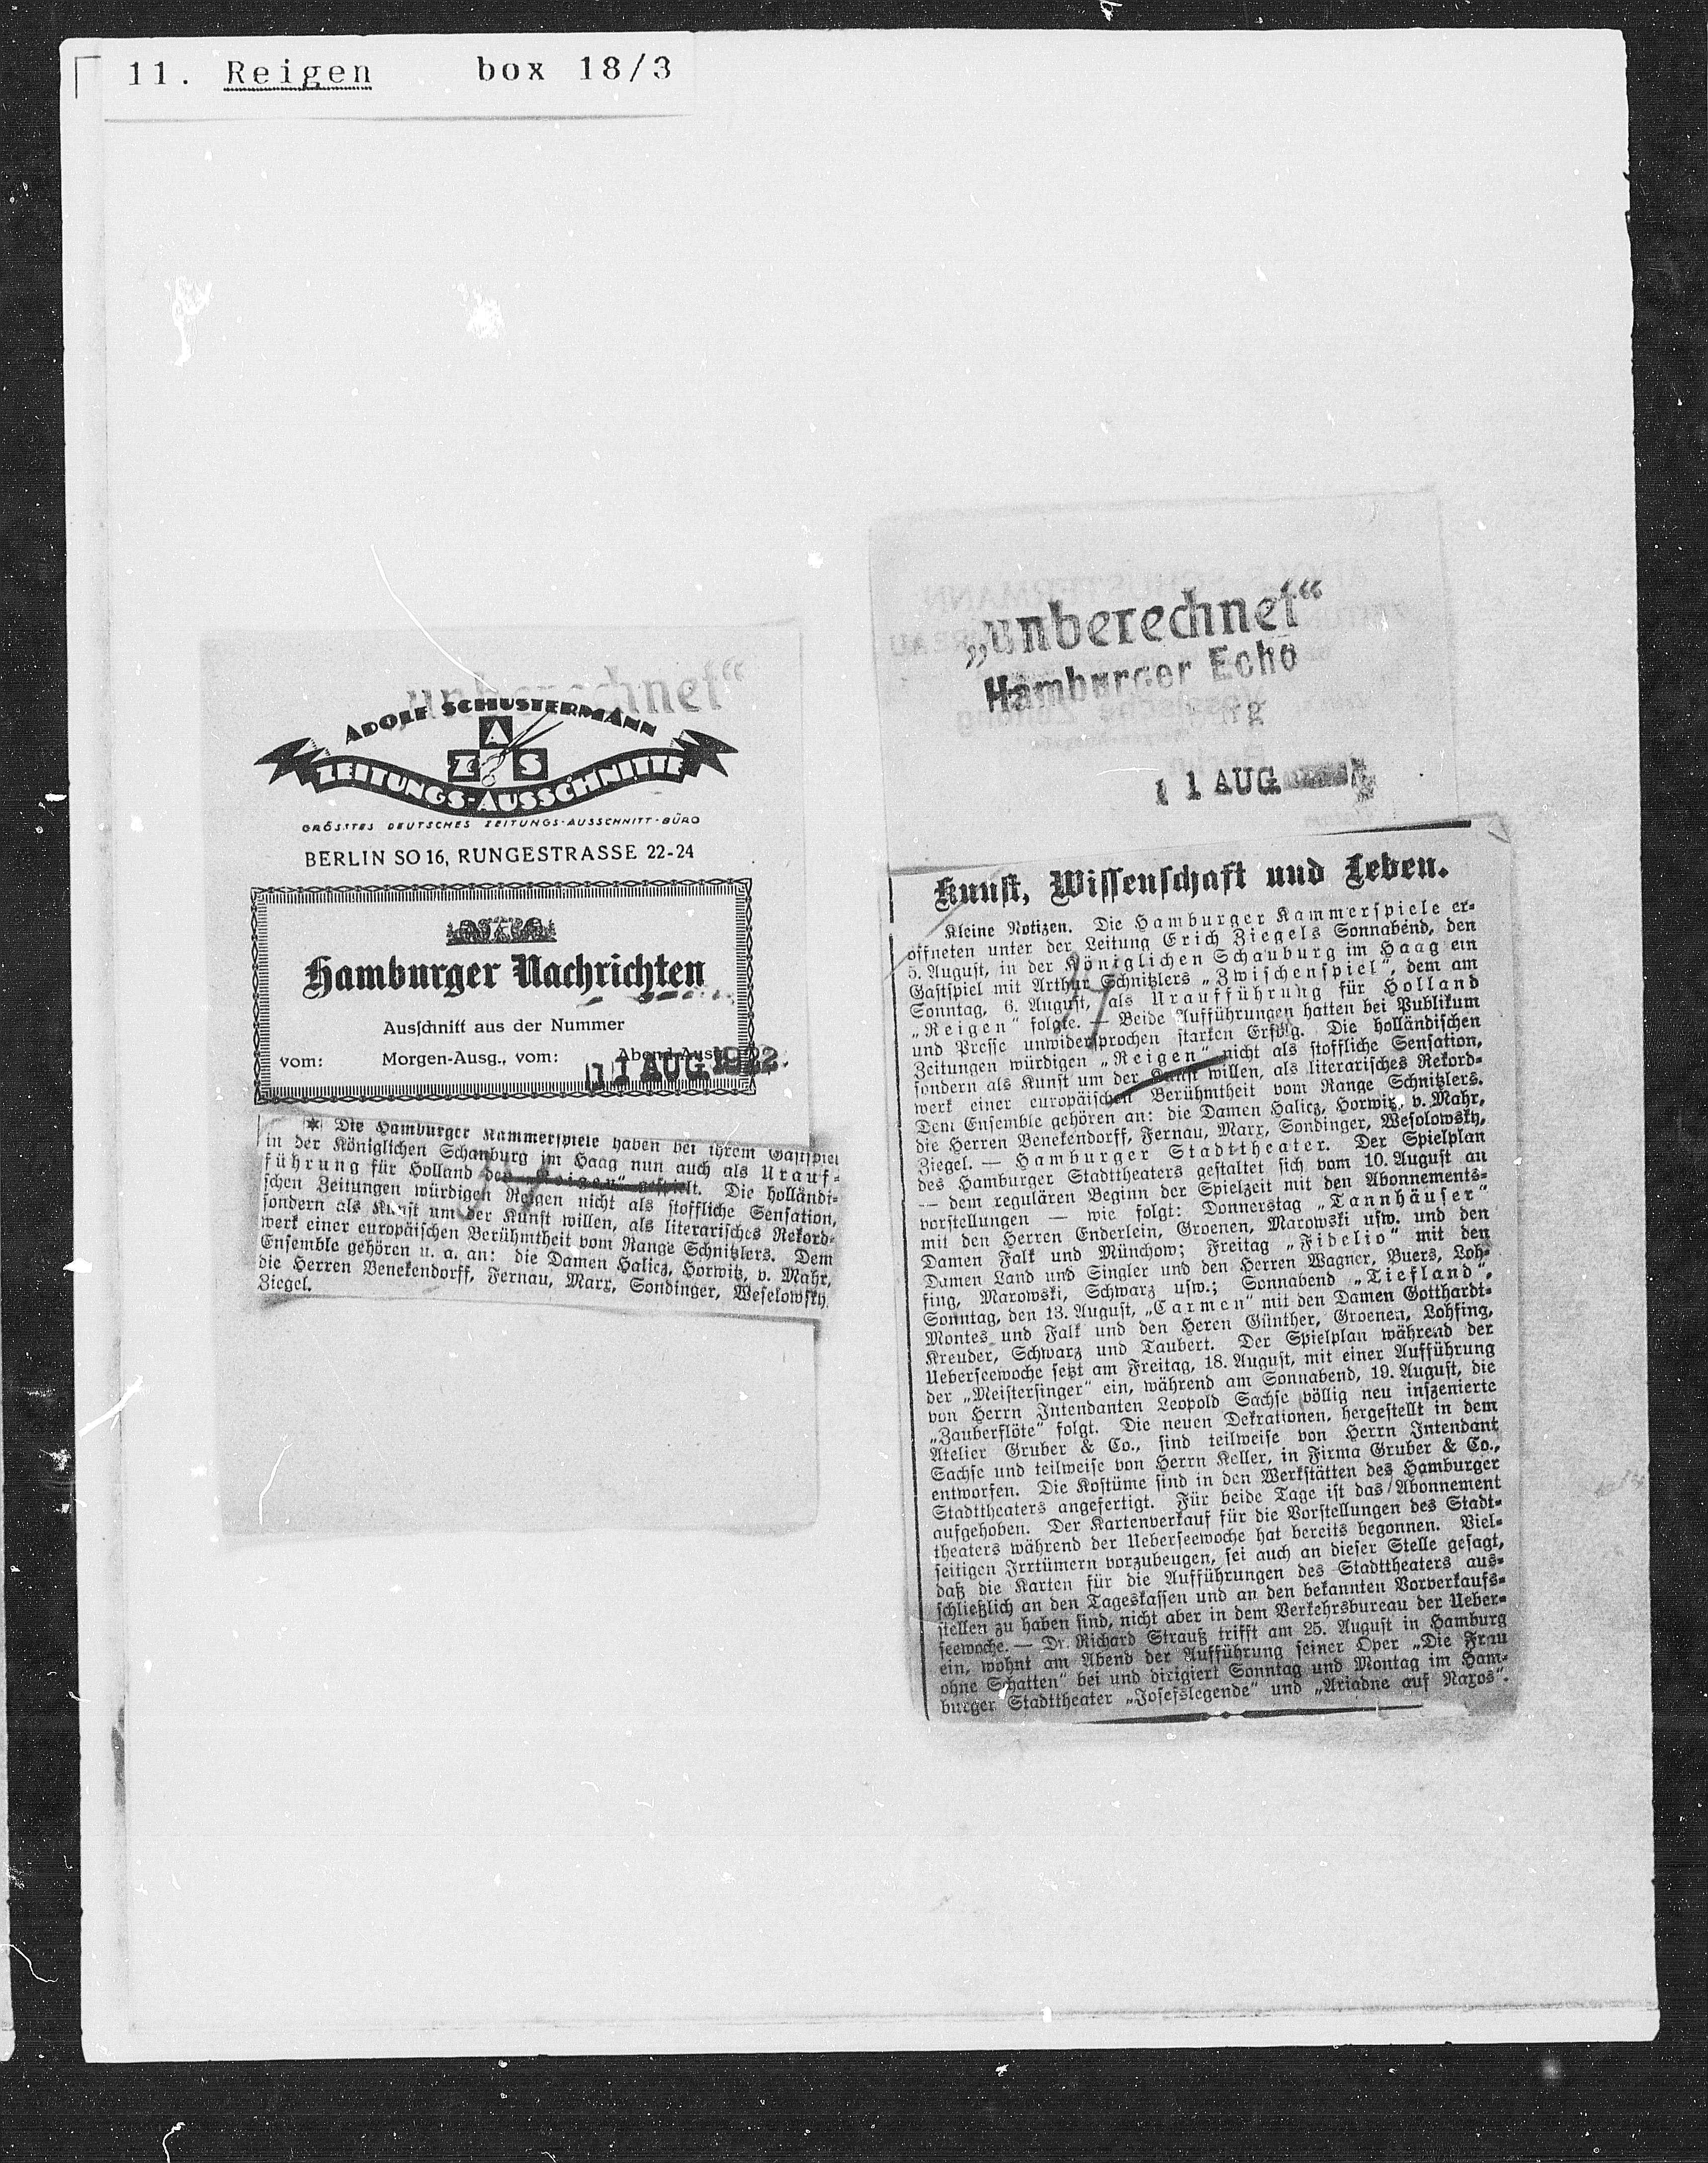 11. Reigen box 18/3
„unberechnet“
ADOLF SCHUSTERMANN
A
Z S
ZEITUNGS-AUSSCHNITTE
GRÖSSTES DEUTSCHES ZEITUNGS-AUSSCHNITT-BÜRO
BERLIN SO 16, RUNGESTRASSE 22-24
Hamburger Nachrichten
Ausschnitt aus der Nummer
vom: Morgen-Ausg., vom: Abend-Ausg.
11 AUG 1922
* Die Hamburger Kammerspiele haben bei ihrem Gastspiel
in der Königlichen Schauburg im Haag nun auch als Urauf-
führung für Holland den „Reigen“ gespielt. Die holländi-
schen Zeitungen würdigen Reigen nicht als stoffliche Sensation,
sondern als Kunst um der Kunst willen, als literarisches Rekord-
werk einer europäischen Berühmtheit vom Range Schnitzlers. Dem
Ensemble gehören u. a. an: die Damen Halicz, Horwitz, v. Mahr,
die Herren Benekendorff, Fernau, Marx, Sondinger, Weselowsky,
Ziegel.
„unberechnet“
Hamburger Echo
11 AUG
Kunst, Wissenschaft und Leben.
Kleine Notizen. Die Hamburger Kammerspiele er-
öffneten unter der Leitung Erich Ziegels Sonnabend, den
5. August, in der Königlichen Schauburg im Haag ein
Gastspiel mit Arthur Schnitzlers „Zwischenspiel“, dem am
Sonntag, 6. August, als Uraufführung für Holland
„Reigen“ folgte. — Beide Aufführungen hatten bei Publikum
und Presse unwidersprochen starken Erfolg. Die holländischen
Zeitungen würdigen „Reigen“ nicht als stoffliche Sensation,
sondern als Kunst um der Kunst willen, als literarisches Rekord-
werk einer europäischen Berühmtheit vom Range Schnitzlers.
Dem Ensemble gehören an: die Damen Halicz, Horwitz, v. Mahr,
die Herren Benekendorff, Fernau, Marx, Sondinger, Wesolowsky,
Ziegel. — Hamburger Stadttheater. Der Spielplan
des Hamburger Stadttheaters gestaltet sich vom 10. August an
— dem regulären Beginn der Spielzeit mit den Abonnements-
vorstellungen — wie folgt: Donnerstag „Tannhäuser“
mit den Herren Enderlein, Groenen, Marowski usw. und den
Damen Falk und Münchow; Freitag „Fidelio“ mit den
Damen Land und Singler und den Herren Wagner, Buers, Loh-
fing, Marowski, Schwarz usw.; Sonnabend „Tiefland“,
Sonntag, den 13. August, „Carmen“ mit den Damen Gotthardt-
Montes und Falk und den Heren Günther, Groenen, Lohfing,
Kreuder, Schwarz und Taubert. Der Spielplan während der
Ueberseewoche setzt am Freitag, 18. August, mit einer Aufführung
der „Meistersinger“ ein, während am Sonnabend, 19. August, die
von Herrn Intendanten Leopold Sachse völlig neu inszenierte
„Zauberflöte“ folgt. Die neuen Dekrationen, hergestellt in dem
Atelier Gruber & Co., sind teilweise von Herrn Intendant
Sachse und teilweise von Herrn Keller, in Firma Gruber & Co.,
entworfen. Die Kostüme sind in den Werkstätten des Hamburger
Stadttheaters angefertigt. Für beide Tage ist das Abonnement
aufgehoben. Der Kartenverkauf für die Vorstellungen des Stadt-
theaters während der Ueberseewoche hat bereits begonnen. Viel-
seitigen Irrtümern vorzubeugen, sei auch an dieser Stelle gesagt,
daß die Karten für die Aufführungen des Stadttheaters aus-
schließlich an den Tageskassen und an den bekannten Vorverkaufs-
stellen zu haben sind, nicht aber in dem Verkehrsbureau der Ueber-
seewoche. — Dr. Richard Strauß trifft am 25. August in Hamburg
ein, wohnt am Abend der Aufführung seiner Oper „Die Frau
ohne Schatten“ bei und dirigiert Sonntag und Montag im Ham-
burger Stadttheater „Josefslegende“ und „Ariadne auf Naxos“.